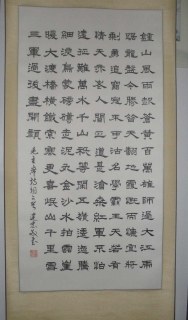 鐘山風雨起蒼黃百萬雄師過大江虎
踞龍盤今勝昔天翻地覆慨而慷宜將
剩勇追窮寇不可沽名學霸王天若有
情天亦老人間正道是滄桑紅軍不怕
遠征難萬水千山只等閒五嶺逶迤騰
細浪烏蒙磅礴走泥丸金沙水拍雲崖
暖大渡橋橫鐵索寒更喜岷山千里雪
三軍過後盡開顏
毛主席詩詞二首